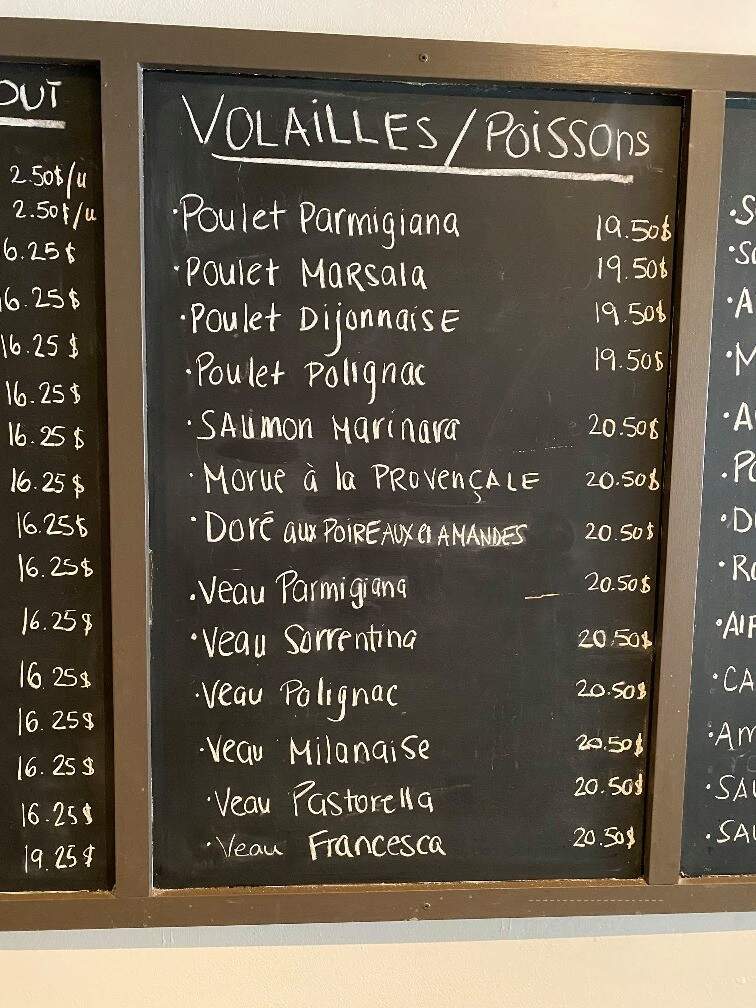 OUT
2.50$/u
2.50$/u
6.25$
16.25$
16.25$
16.25$
16.25$
16.25$
16.25$
16.25$
16.25$
16.25$
16.25$
16.25$
16.25$
19.25$
VOLAILLES/POISSONS
·Poulet Parmigiana 19.50$
·Poulet MARSALA 19.50$
·Poulet DIJONNAISE 19.50$
·Poulet Polignac 19.50$
·SAUMON MARINARA 20.50$
·Morue à la PROVENÇALE 20.50$
·Doré aux POIREAUX et AMANDES 20.50$
·Veau Parmigiana 20.50$
·Veau Sorrentina 20.50$
·Veau Polignac 20.50$
·Veau Milanaise 20.50$
·Veau Pastorella 20.50$
·Veau Francesca 20.50$
·S
·Sa
·A
·M
·A
·Po
·D
·Ro
·AIF
·CA
·Am
·SAU
·SAU